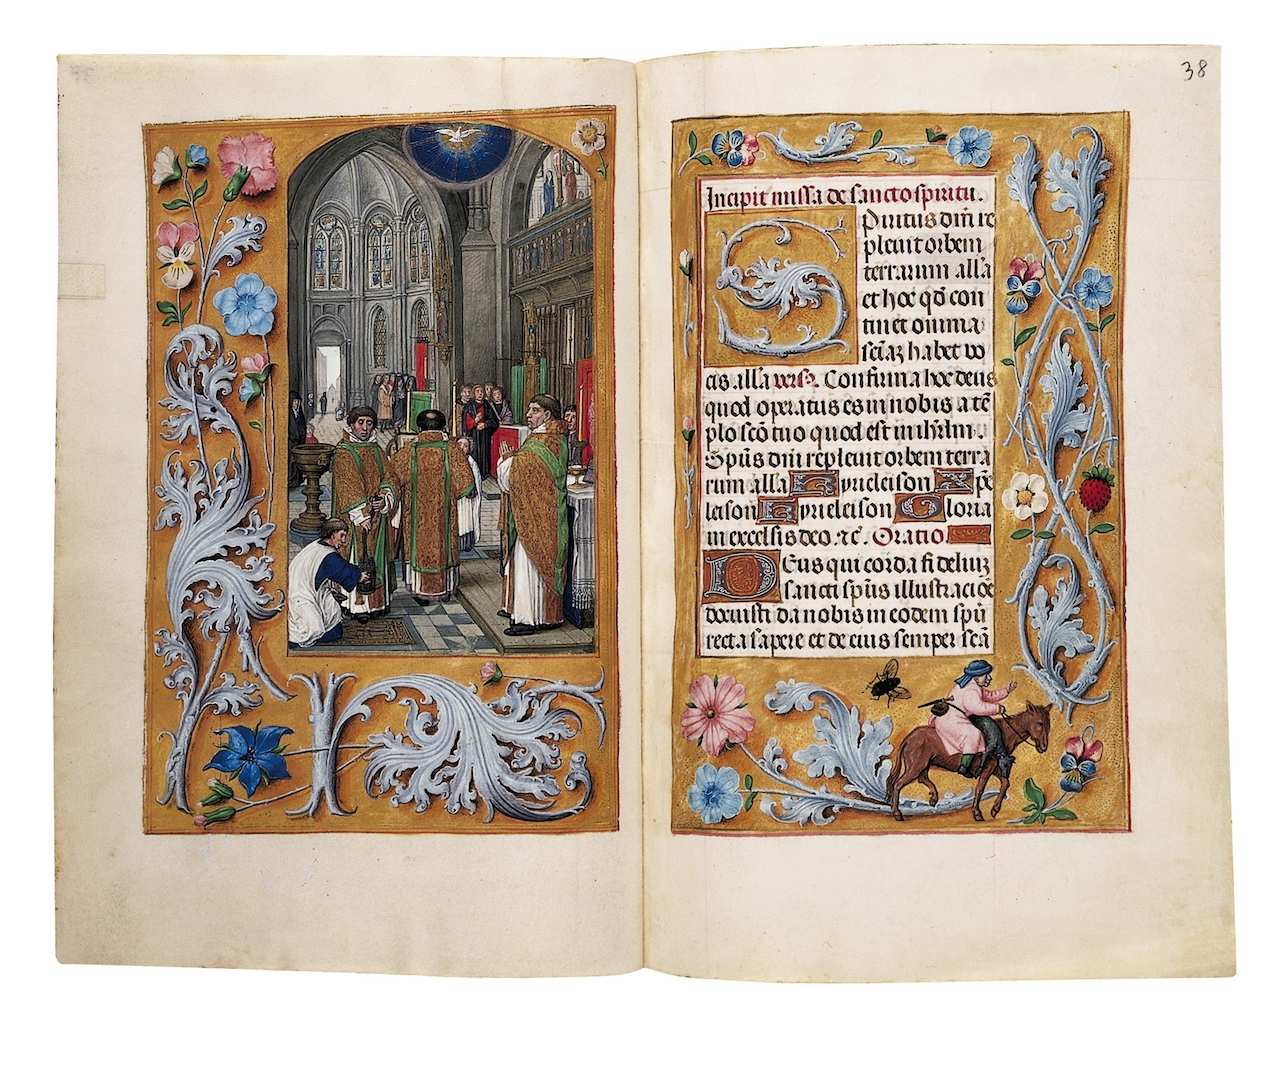 38
Incipit missa de sancto spiritu.
Spiritus dñi re
pleuit orbem
terrarum all'a
et hoc qđ con
tinet omnia
sciẽ̃ habet vo
cis all'a vers9. Confirma hoc deus
quod operatus es in nobis a tẽ
plo scõ tuo quod est in ihrl̃m.
Spũs dñi repleuit orbem terra
rum alla Kyrieleison Xp̃e
leison Kyrieleison Gloria
in excelsis deo. ⁊c̃. Oratio.
Deus qui corda fideliuz
sancti spũs illustracióe
docuisti da nobis in eodem spũ
recta sapere et de eius semper scã